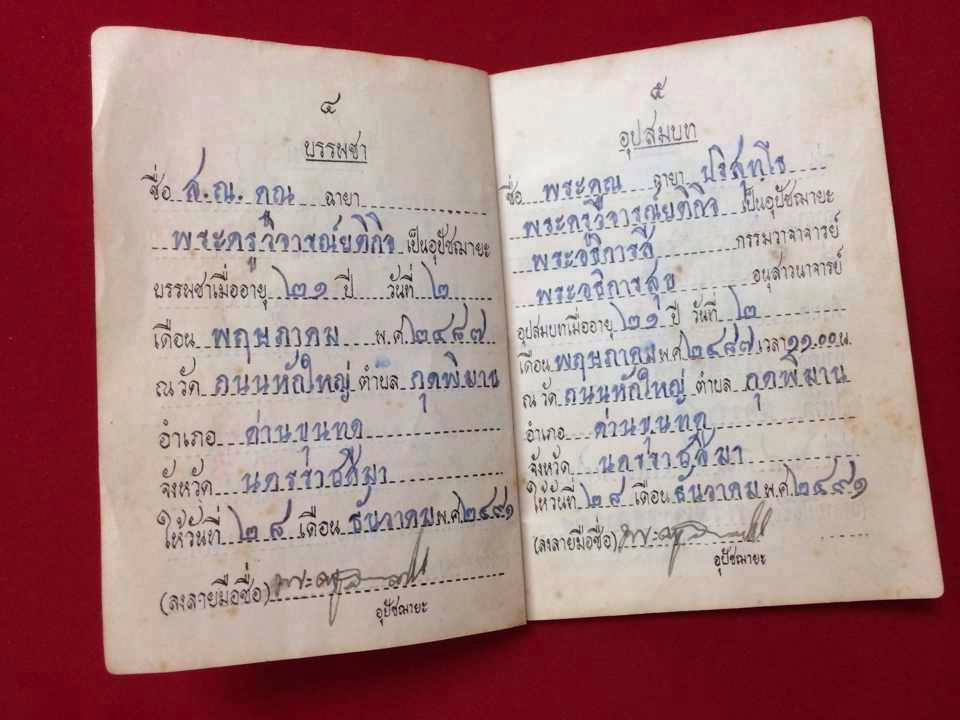 ๔
บรรพชา
ชื่อ ส.ณ. คูณ ฉายา
พระครูวิจารณ์ยติกิจ เป็นอุปัชฌายะ
บรรพชาเมื่ออายุ ๒๑ ปี วันที่ ๒
เดือน พฤษภาคม พ.ศ. ๒๔๘๗
ณ วัด ถนนหักใหญ่ ตำบล กุดพิมาน
อำเภอ ด่านขุนทด
จังหวัด นครราชสีมา
ให้วันที่ ๒๘ เดือน ธันวาคม พ.ศ. ๒๔๙๑
(ลงลายมือชื่อ)
อุปัชฌายะ
๕
อุปสมบท
ชื่อ พระคูณ ฉายา ปริสุทฺโธ
พระครูวิจารณ์ยติกิจ เป็นอุปัชฌายะ
พระอธิการสี กรรมวาจาจารย์
พระอธิการสุข อนุสาวนาจารย์
อุปสมบทเมื่ออายุ ๒๑ ปี วันที่ ๒
เดือน พฤษภาคม พ.ศ. ๒๔๘๗ เวลา ๑๑.๐๐ น.
ณ วัด ถนนหักใหญ่ ตำบล กุดพิมาน
อำเภอ ด่านขุนทด
จังหวัด นครราชสีมา
ให้วันที่ ๒๘ เดือน ธันวาคม พ.ศ. ๒๔๙๑
(ลงลายมือชื่อ)
อุปัชฌายะ